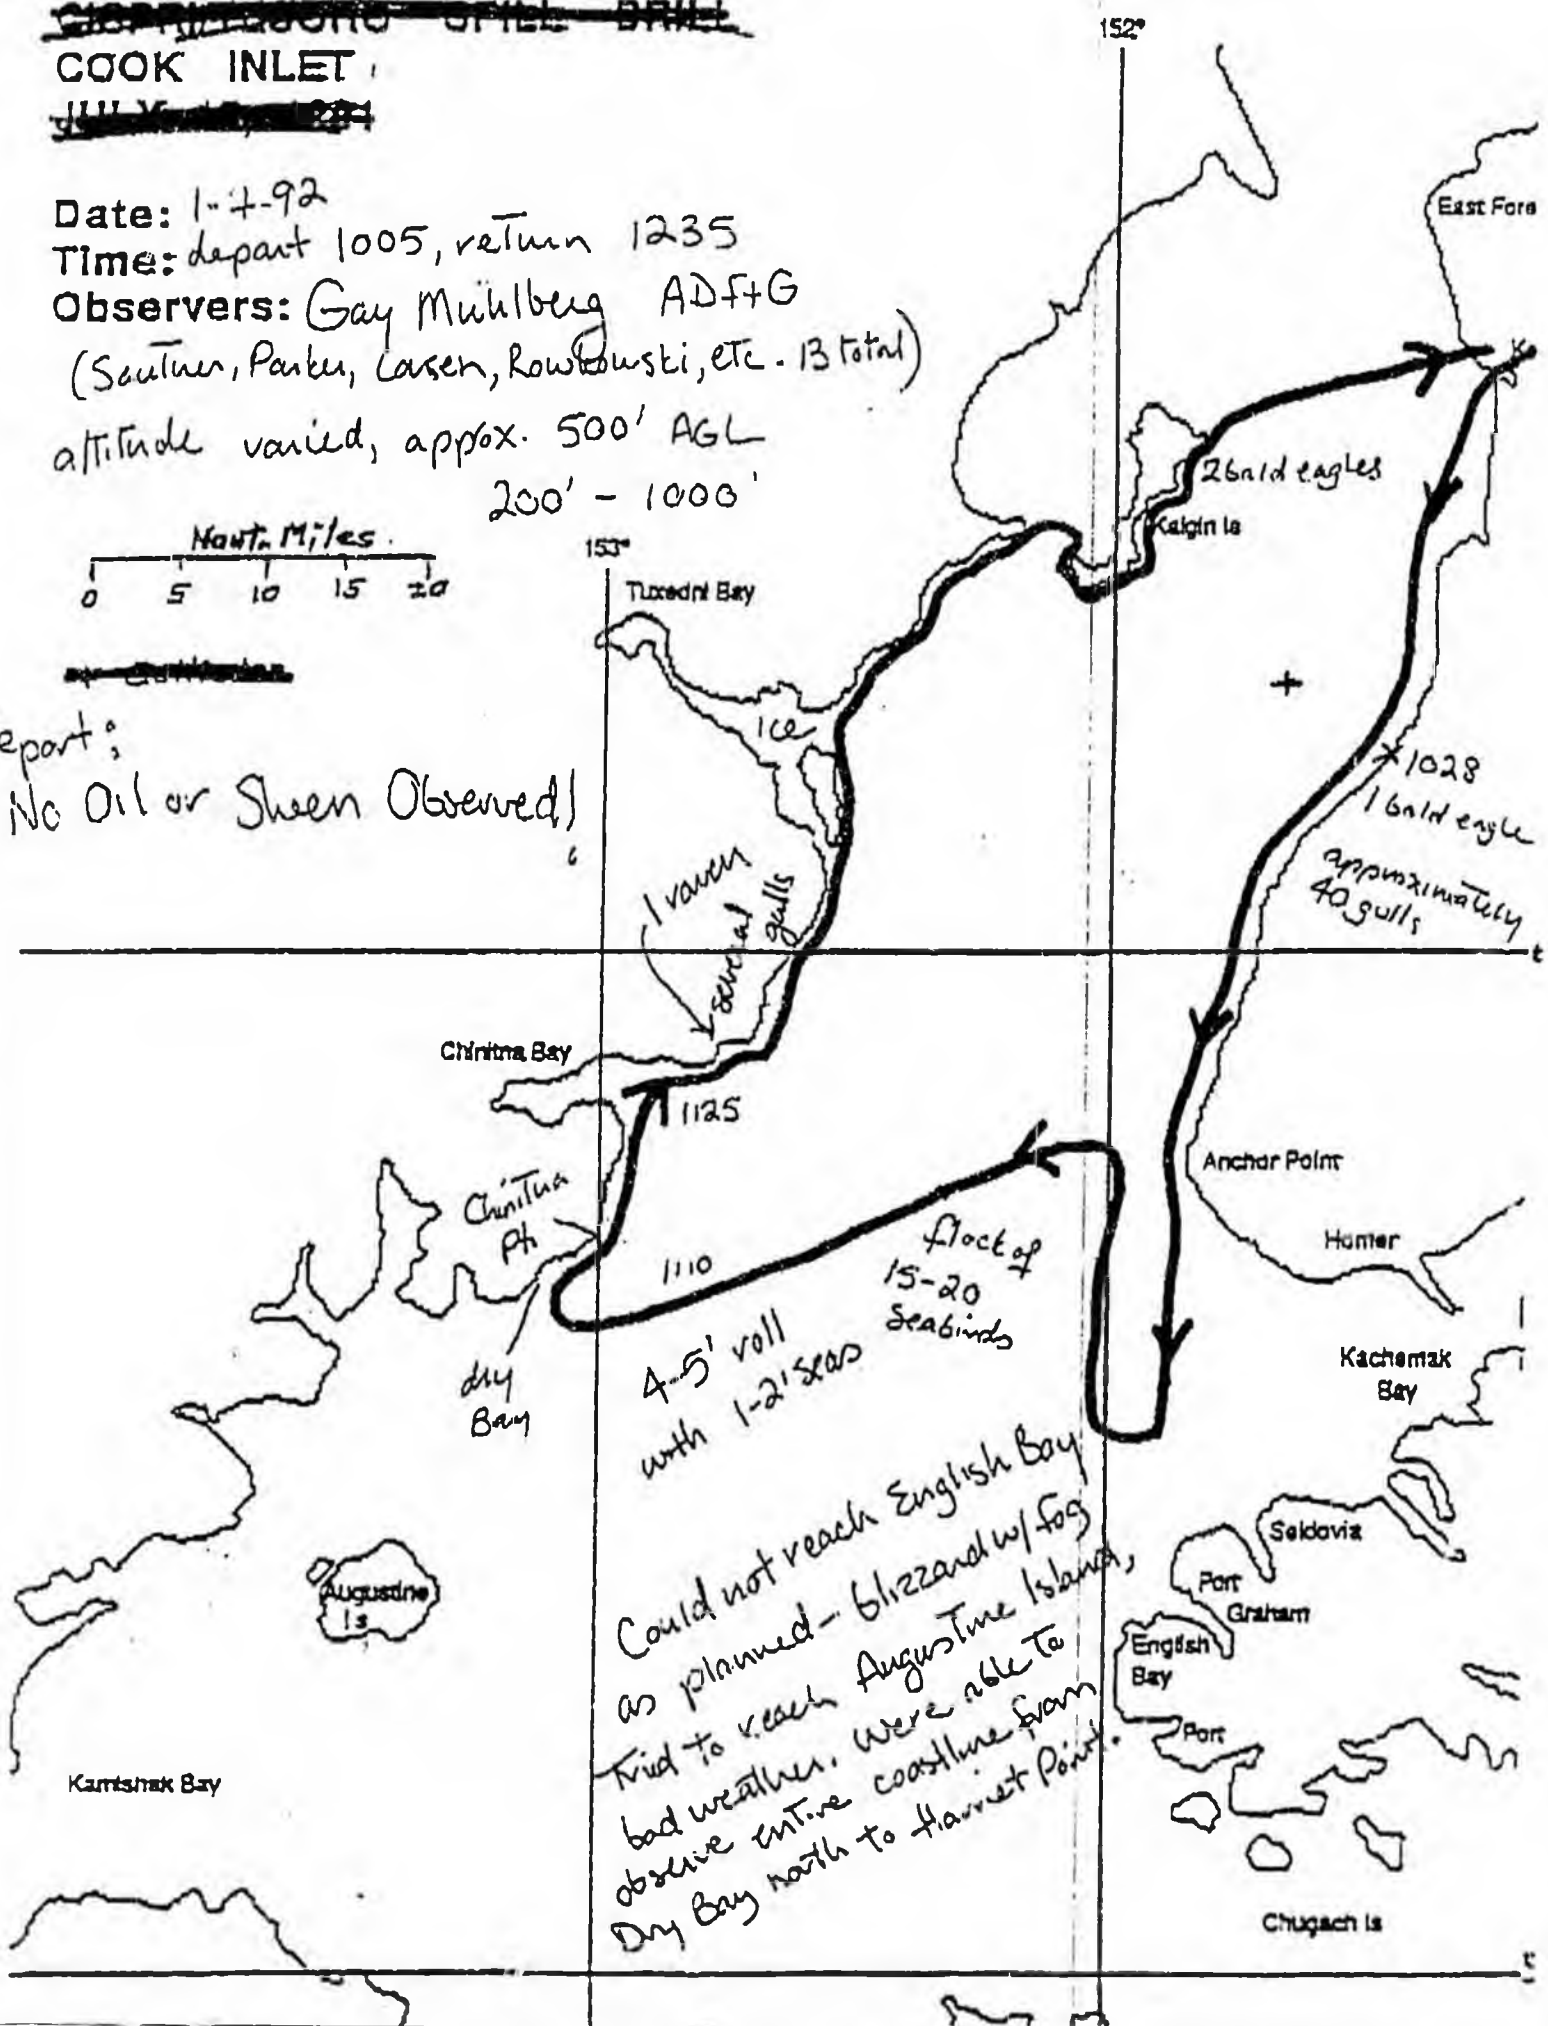 SPILL DRILL
COOK INLET
Date: 1-7-92
Time: depart 1005, return 1235
Observers: Gay Muhlberg ADF+G
(Sautner, Parker, Larsen, Rowkowski, etc. 13 total)
altitude varied, approx. 500' AGL
200' - 1000'
Naut. Miles
0 5 10 15 20
eport:
No Oil or Sheen Observed!
152°
153°
East Fore
2 bald eagles
Kalgin Is
Tuxedni Bay
Ice
1028
1 bald eagle
approximately
40 gulls
1 raven
several
gulls
Chinitna Bay
1125
Chinitna
Pt.
1110
dry
Bay
flock of
15-20
seabirds
4-5' roll
with 1-2' seas
Anchor Point
Homer
Kachemak
Bay
Could not reach English Bay
as planned - blizzard w/ fog
Tried to reach Augustine Island,
bad weather. Were able to
observe entire coastline from
Dry Bay north to Harriet Point.
Seldovia
Port
Graham
English
Bay
Port
Augustine
Is
Kamishak Bay
Chugach Is